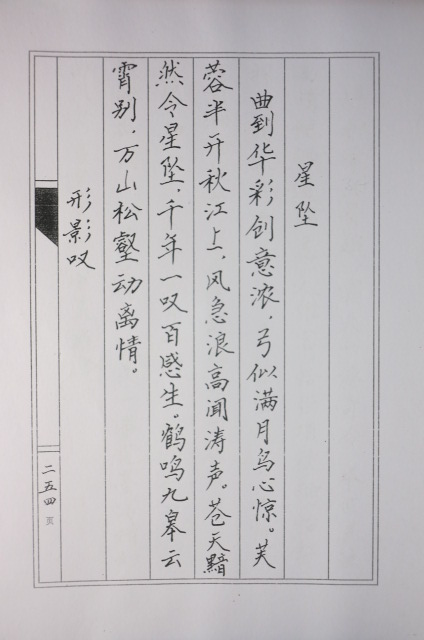 星坠
曲到华彩创意浓，弓似满月鸟心惊。芙
蓉半开秋江上，风急浪高闻涛声。苍天黯
然令星坠，千年一叹百感生。鹤鸣九皋云
霄别，万山松壑动离情。
形影叹
二五四页